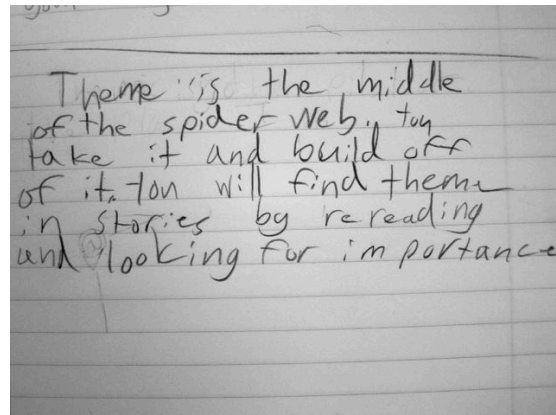 Theme is the middle
of the spider web. You
take it and build off
of it. You will find theme
in stories by rereading
and looking for importance